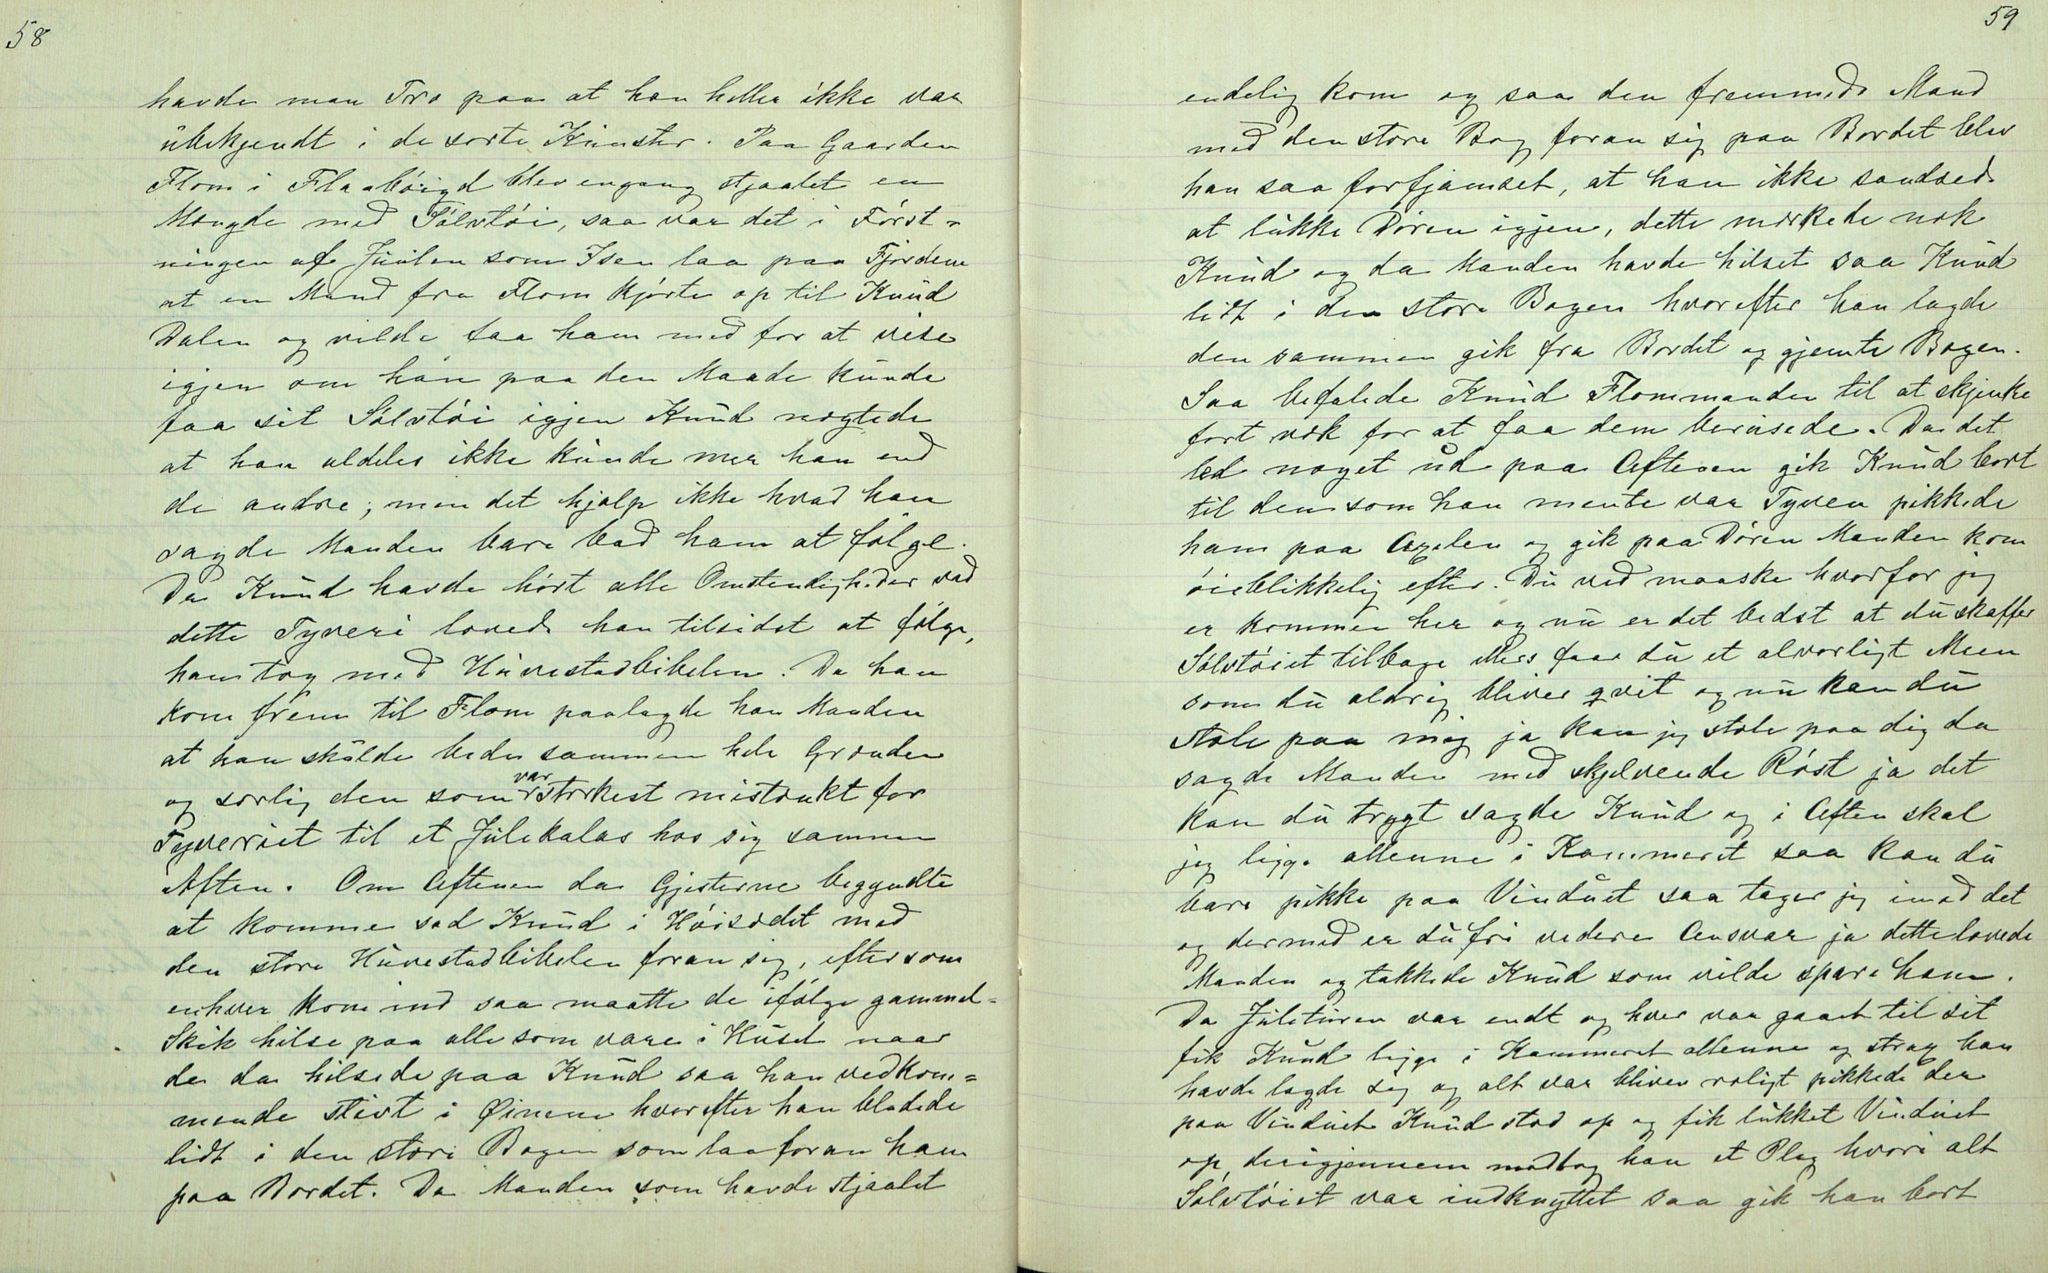 58
havde man Tro paa at han heller ikke var
ubekjendt i de sorte Kunster. Paa Gaarden
Flom i Flaabøigd blev engang stjaalet en
Mængde med Sølvtøi, saa var det i Først-
ningen af Juulen som Isen laa paa Fjordene
at en Mand fra Flom kjørte op til Knud
Dalen og vilde faa ham med for at vise
igjen om han paa den Maade kunde
faa sit Sølvtøi igjen Knud nægtede
at han aldeles ikke kunde mer han end
de andre; men det hjalp ikke hvad han
sagde Manden bare bad ham at følge.
Da Knud havde hørt alle Omstendigheder ved
dette Tyveri lovede han tilsidst at følge,
han tog med Huvestadbibelen. Da han
kom frem til Flom paalagde han Manden
at han skulde bede sammen hele Grænden
og særlig den som var stærkest mistænkt for
Tyveriet til et Julekalas hos sig samme
Aften. Om Aftenen da Gjesterne begyndte
at komme sad Knud i Høisædet med
den store Huvestadbibelen foran sig, eftersom
enhver kom ind saa maatte de ifølge gammel-
Skik hilse paa alle som vare i Huset naar
de da hilsede paa Knud saa han vedkom-
mende stivt i Øinene hvorefter han bladede
lidt i den store Bogen som laa foran ham
paa Bordet. Da Manden som havde stjaalet
59
endelig kom og saa den fremmede Mand
med den store Bog foran sig paa Bordet blev
han saa forfjamset, at han ikke sandsede
at lukke Døren igjen, dette mærkede nok
Knud og da Manden havde hilset saa Knud
lidt i den store Bogen hvorefter han lagde
den sammen gik fra Bordet og gjemte Bogen.
Saa befalede Knud Flommanden til at skjenke
fort væk for at faa dem berusede. Da det
led noget ud paa Aftenen gik Knud bort
til den som han mente var Tyven pikkede
ham paa Axelen og gik paa Døren Manden kom
øieblikkelig efter. Du ved maaske hvorfor jeg
er kommen her og nu er det bedst at du skaffer
Sølvtøiet tilbage ellers faar du et alvorligt Meen
som du aldrig bliver qvit og nu kan du
stole paa mig ja kan jeg stole paa dig da
sagde Manden med skjelvende Røst ja det
kan du trygt sagde Knud og i Aften skal
jeg ligge allenne i Kammeret saa kan du
bare pikke paa Vinduet saa tager jeg imod det
og dermed er du fri videre Ansvar ja dette lovede
Manden og takkede Knud som vilde spare ham.
Da Juleturen var endt og hver var gaaet til sit
fik Knud ligge i Kammeret allenne og strax han
havde lagde seg og alt var bliven roligt pikkede der
paa Vinduet Knud stod op og fik lukket Vinduet
op, derigjennem modtog han et Plag hvori alt
Sølvtøiet var indknyttet saa gik han bort